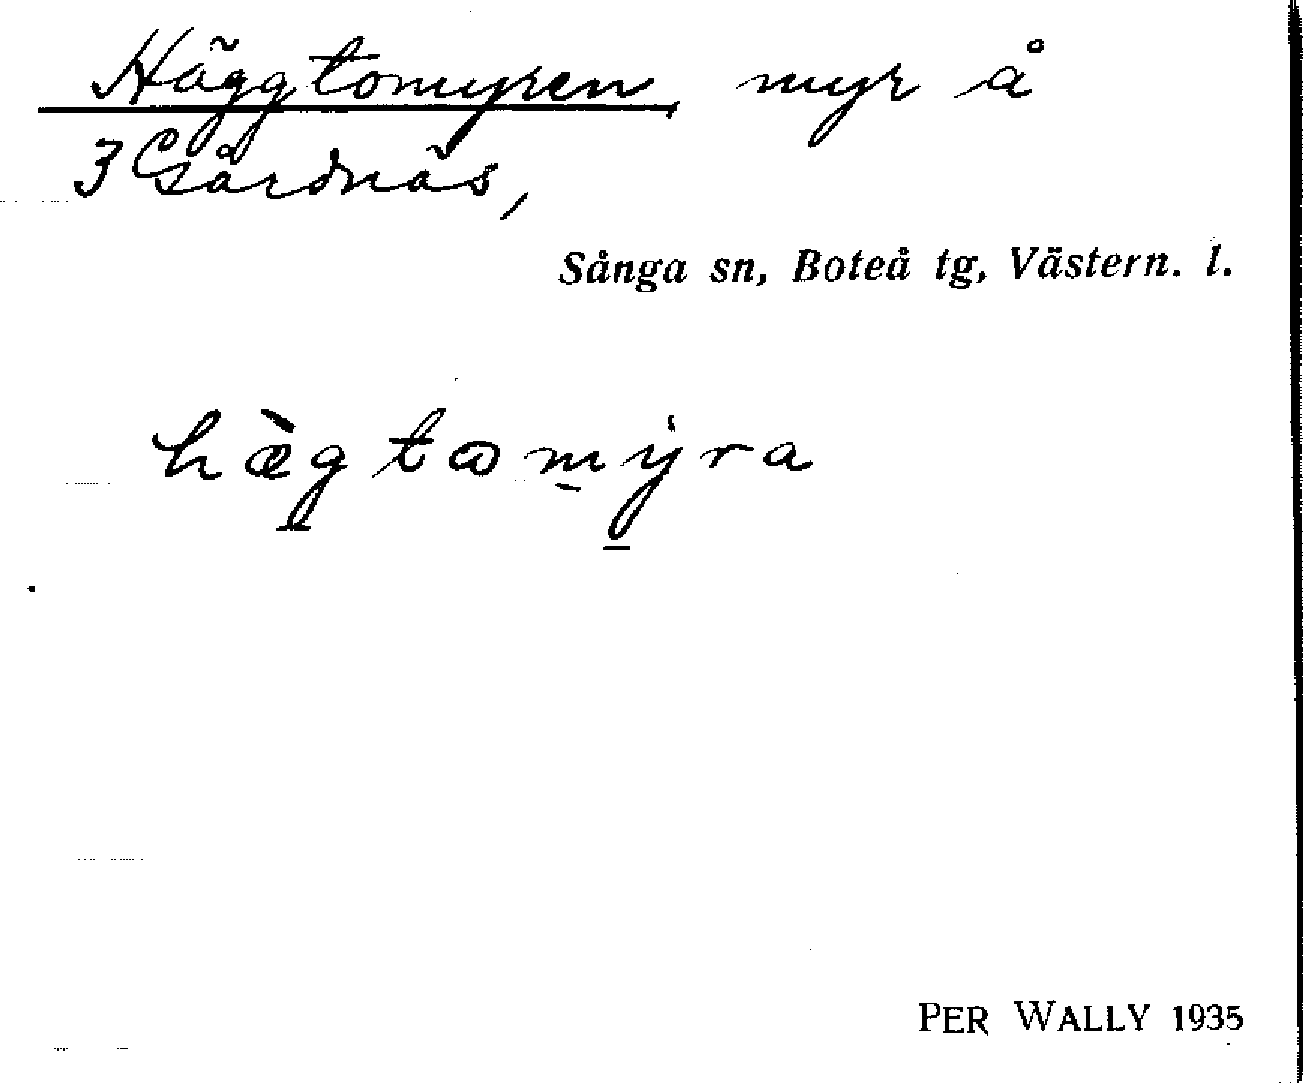 Häggtomyren, myr å
3 Gårdnäs,
Sånga sn, Boteå tg, Västern. l.
hæ̀gtꞷmýra
PER WALLY 1935